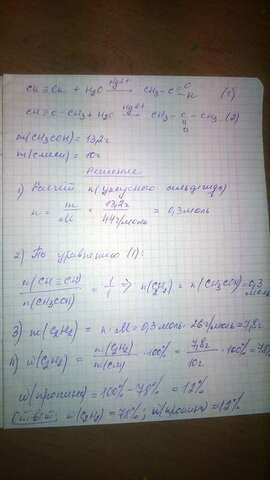 CH≡CH + H₂O —Hg2+→ CH₃-C=O H (1)
CH≡C-CH₃+H₂O —Hg2+→ CH₃-C-CH₃ (2)
O
m(CH₃COH)=13,2г
m(смеси)= 10г
Решение
1) Расчёт n(уксусного альдегида)
n = m/M = 13,2г/44г/моль = 0,3моль
2) По уравнению (1):
n(CH≡CH)/n(CH₃COH) = 1/1 ⇒ n(C₂H₂) = n(CH₃COH)=0,3 моль
3) m(C₂H₂) = n·M=0,3моль·26г/моль=7,8г
4) w(C₂H₂)= m(C₂H₂)/m(см) ·100% = 7,8г/10г ·100% =78%
w(пропина)=100%-78% =12%
Ответ: w(C₂H₂)=78%; w(пропина)=12%